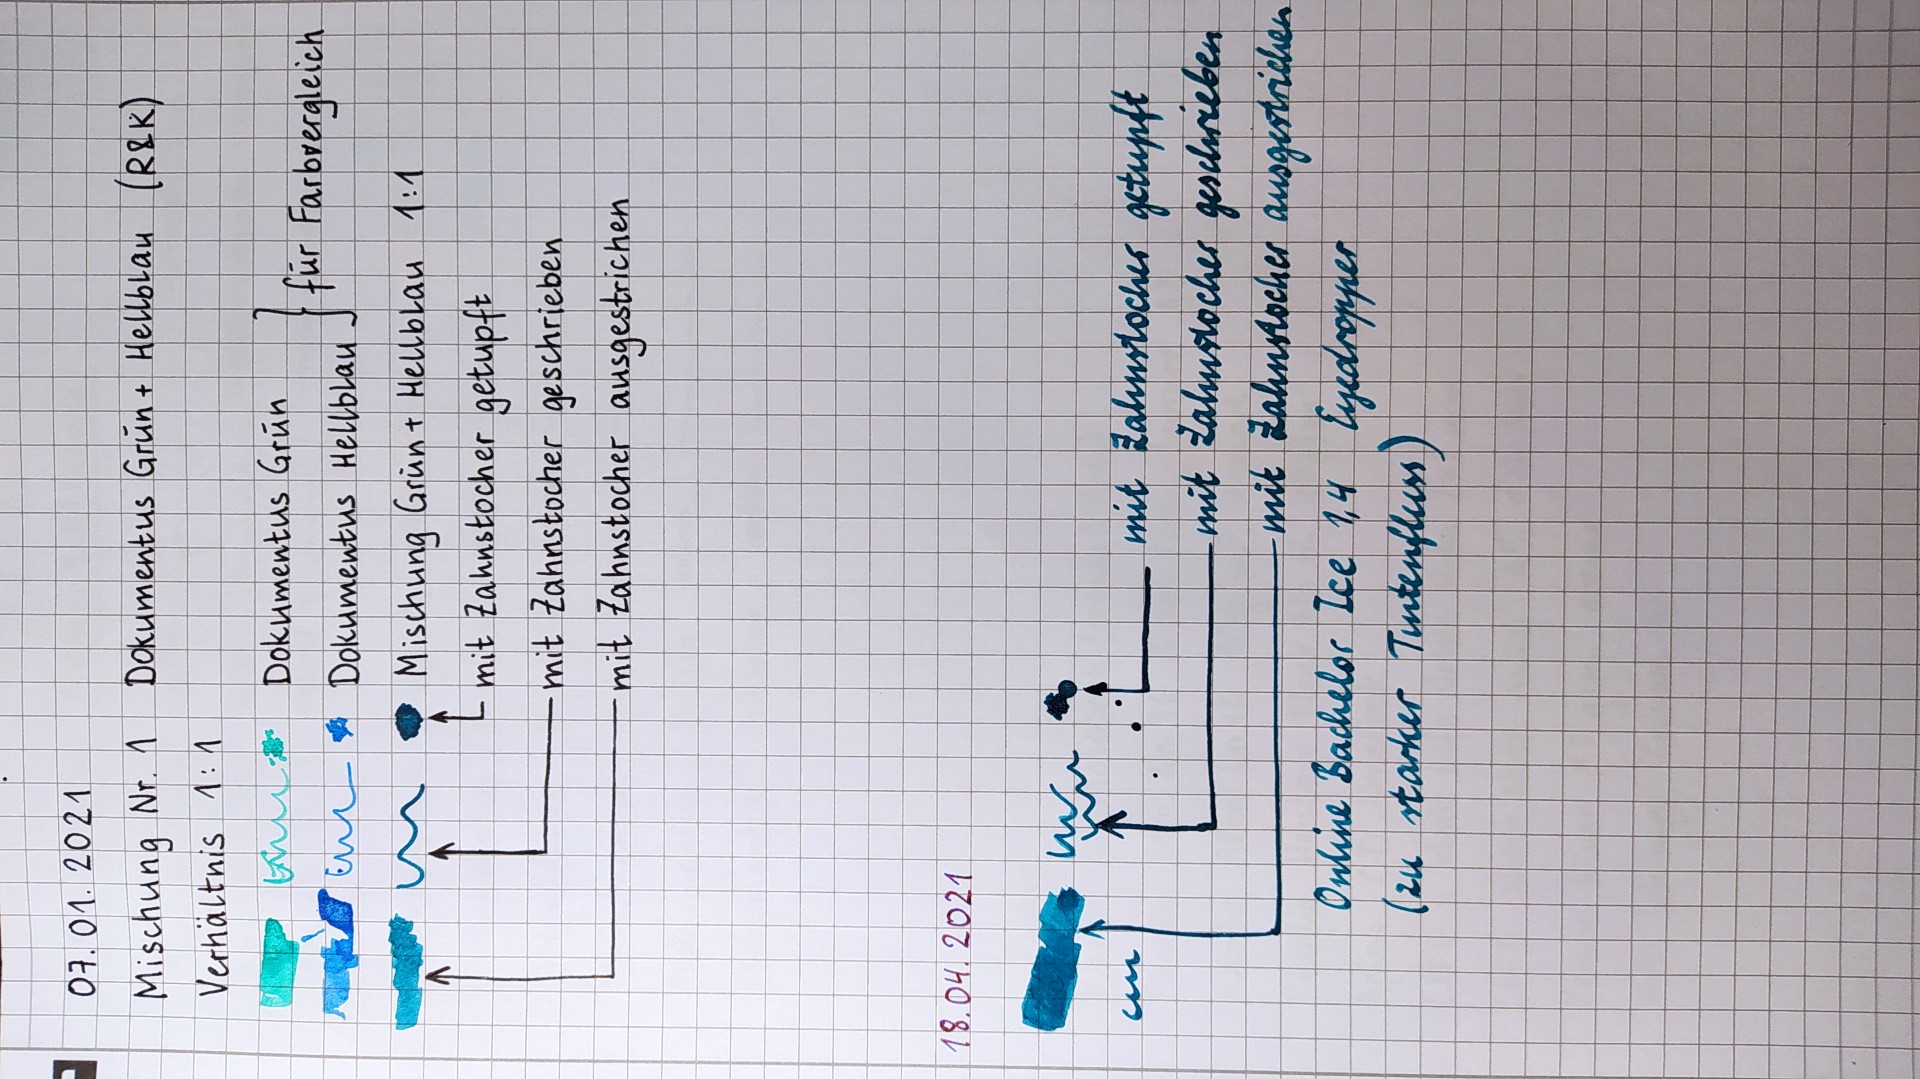 07.01.2021
Mischung Nr. 1 Dokumentus Grün + Hellblau (R&K)
Verhältnis 1:1
Dokumentus Grün
Dokumentus Hellblau
für Farbvergleich
Mischung Grün + Hellblau 1:1
mit Zahnstocher getupft
mit Zahnstocher geschrieben
mit Zahnstocher ausgestrichen
18.04.2021
mit Zahnstocher getupft
mit Zahnstocher geschrieben
mit Zahnstocher ausgestrichen
Online Bachelor Ice 1,4 Eyedropper
(zu starker Tintenfluss)